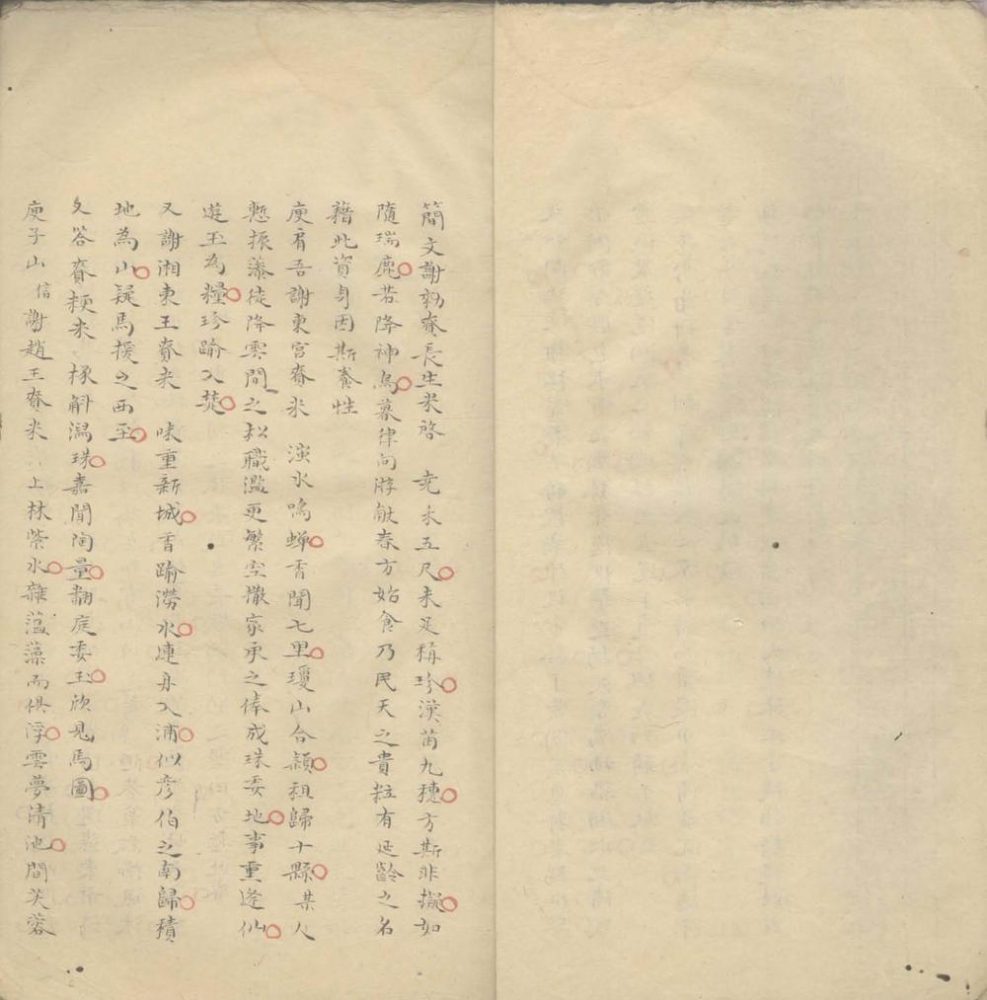 簡文謝勑賚長生米啓　堯禾五尺未足稱珍漢苗九穗方斯非擬如
隨瑞鹿若降神烏暮律向游獻春方始食乃民天之貴粒有延齡之名
藉此資身因斯養性
庾肩吾謝東宮賚米　滍水鳴蟬香聞七里瓊山合穎租歸十縣某八
慙振藻徒降雲間之松職濫更繁空撒家承之俸成珠委地事重逢仙
遊玉為糧珍踰入楚
又謝湘東王賚米　味重新城香踰澇水連舟入浦似彥伯之南歸積
地為山疑馬援之西至
又答賚粳米　椽斛瀉珠嘉聞陶量翻庭委玉欣見馬圖
庾子山信謝趙王賚米　上林紫水雜薀藻而俱浮雲夢清池間芙蓉